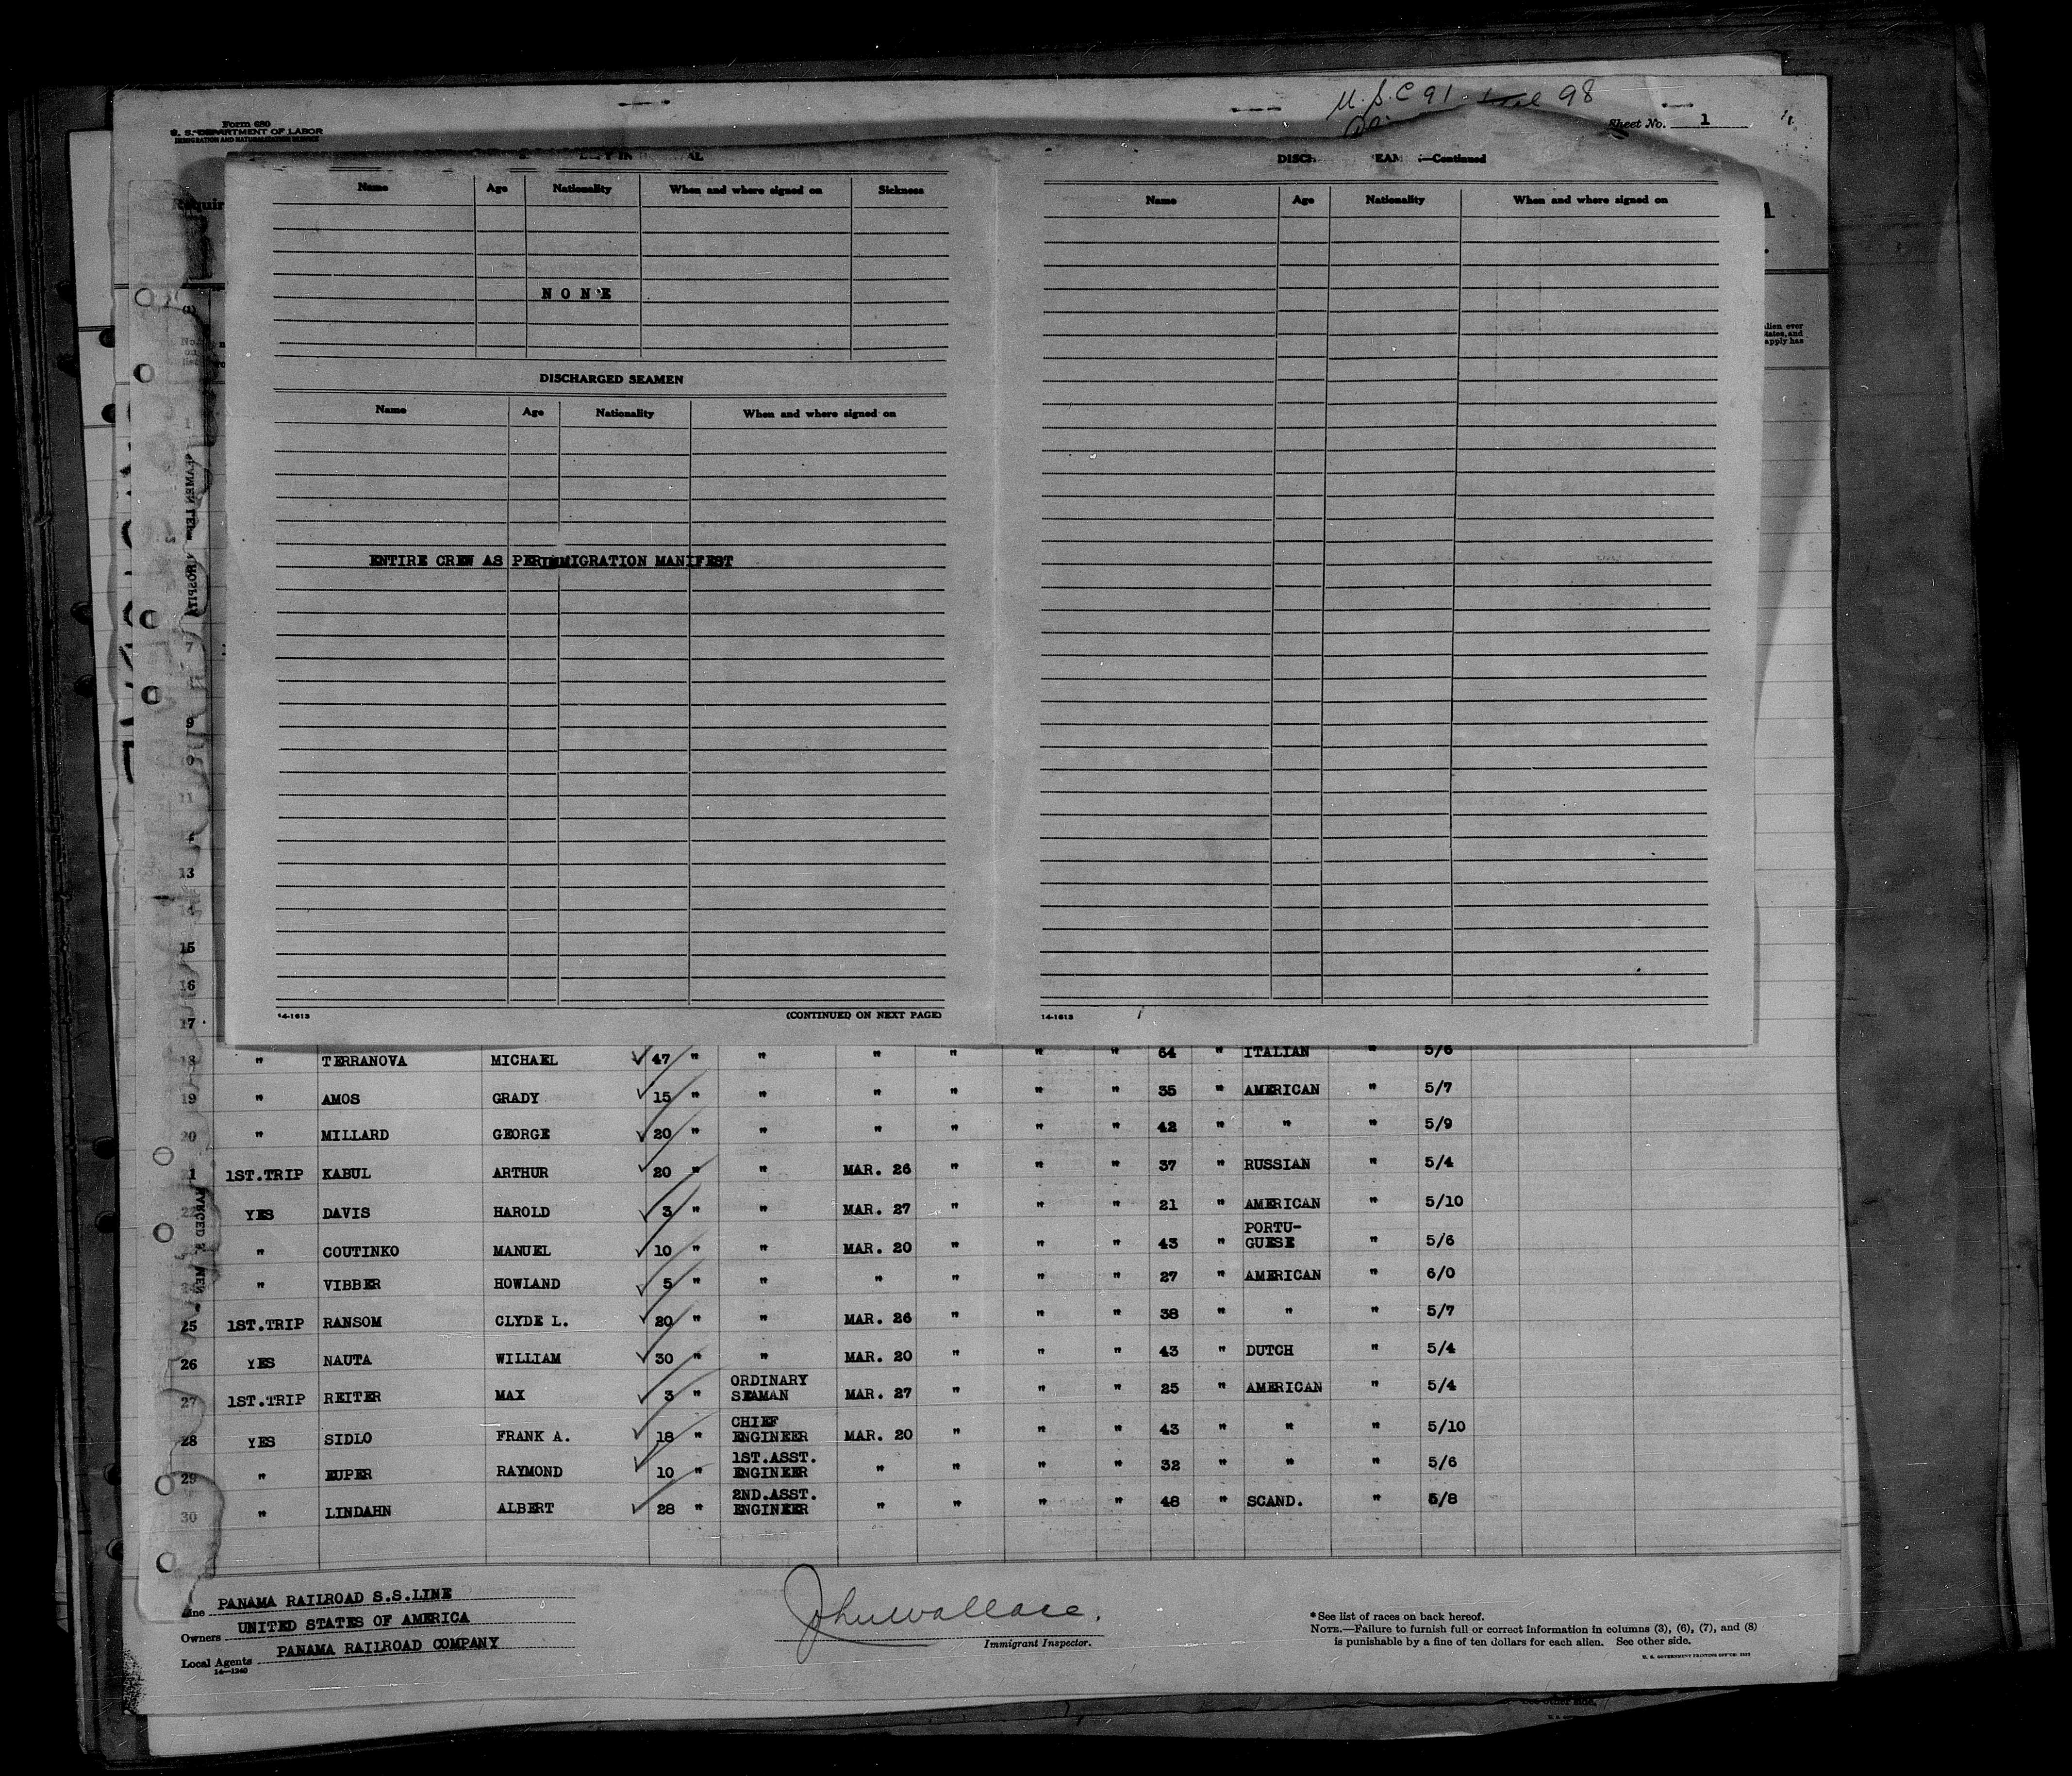 Form 680
U. S. DEPARTMENT OF LABOR
IMMIGRATION AND NATURALIZATION SERVICE
U.S.C 91 98
Sheet No. 1
Name Age Nationality When and where signed on Sickness
NONE
DISCHARGED SEAMEN
Name Age Nationality When and where signed on
ENTIRE CREW AS PER IMMIGRATION MANIFEST
14-1613 (CONTINUED ON NEXT PAGE)
—Continued
Name Age Nationality When and where signed on
14-1613
alien ever
States, and
apply has
7
9
11
13
15
16
17
18 " TERRANOVA MICHAEL ✓ 47 " " " " " " 64 " ITALIAN " 5/6
19 " AMOS GRADY ✓ 15 " " " " " " 35 " AMERICAN " 5/7
20 " MILLARD GEORGE ✓ 20 " " " " " " 42 " " " 5/9
1 1ST.TRIP KABUL ARTHUR ✓ 20 " " MAR. 26 " " " 37 " RUSSIAN " 5/4
22 YES DAVIS HAROLD ✓ 3 " " MAR. 27 " " " 21 " AMERICAN " 5/10
" COUTINKO MANUEL ✓ 10 " " MAR. 20 " " " 43 " PORTU-
GUESE " 5/6
" VIBBER HOWLAND ✓ 5 " " " " " " 27 " AMERICAN " 6/0
25 1ST.TRIP RANSOM CLYDE L. ✓ 20 " " MAR. 26 " " " 38 " " 5/7
26 YES NAUTA WILLIAM ✓ 30 " " MAR. 20 " " " 43 " DUTCH " 5/4
27 1ST.TRIP REITER MAX ✓ 3 " ORDINARY
SEAMAN MAR. 27 " " " 25 " AMERICAN " 5/4
28 YES SIDLO FRANK A. ✓ 18 " CHIEF
ENGINEER MAR. 20 " " " 43 " " " 5/10
29 " EUPER RAYMOND ✓ 10 " 1ST.ASST.
ENGINEER " " " " 32 " " " 5/6
30 " LINDAHN ALBERT ✓ 28 " 2ND.ASST.
ENGINEER " " " " 48 " SCAND. " 5/8
Line PANAMA RAILROAD S.S.LINE
Owners UNITED STATES OF AMERICA
Local Agents PANAMA RAILROAD COMPANY
14—1240
John Wallace.
Immigrant Inspector.
*See list of races on back hereof.
NOTE.—Failure to furnish full or correct information in columns (3), (6), (7), and (8)
is punishable by a fine of ten dollars for each alien. See other side.